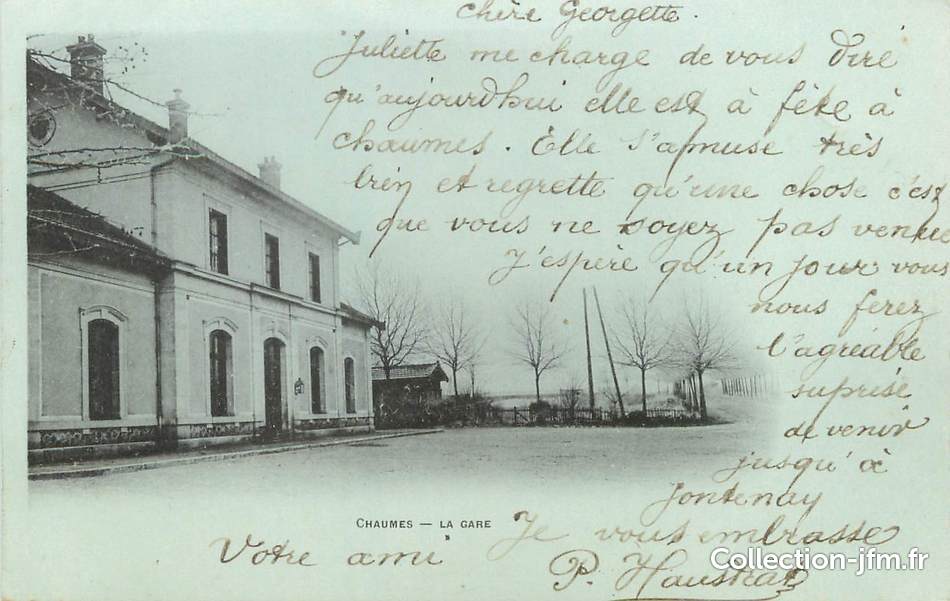 chère Georgette.
Juliette me charge de vous dire
qu'aujourdhui elle est à fête à
chaumes. Elle s'amuse très
bien et regrette qu'une chose c'est
que vous ne soyez pas venue
J'espère qu'un jour vous
nous ferez
l'agréable
suprise
de venir
jusqu'à
Fontenay
CHAUMES — LA GARE
Je vous embrasse
Votre ami
P.
Collection-jfm.fr